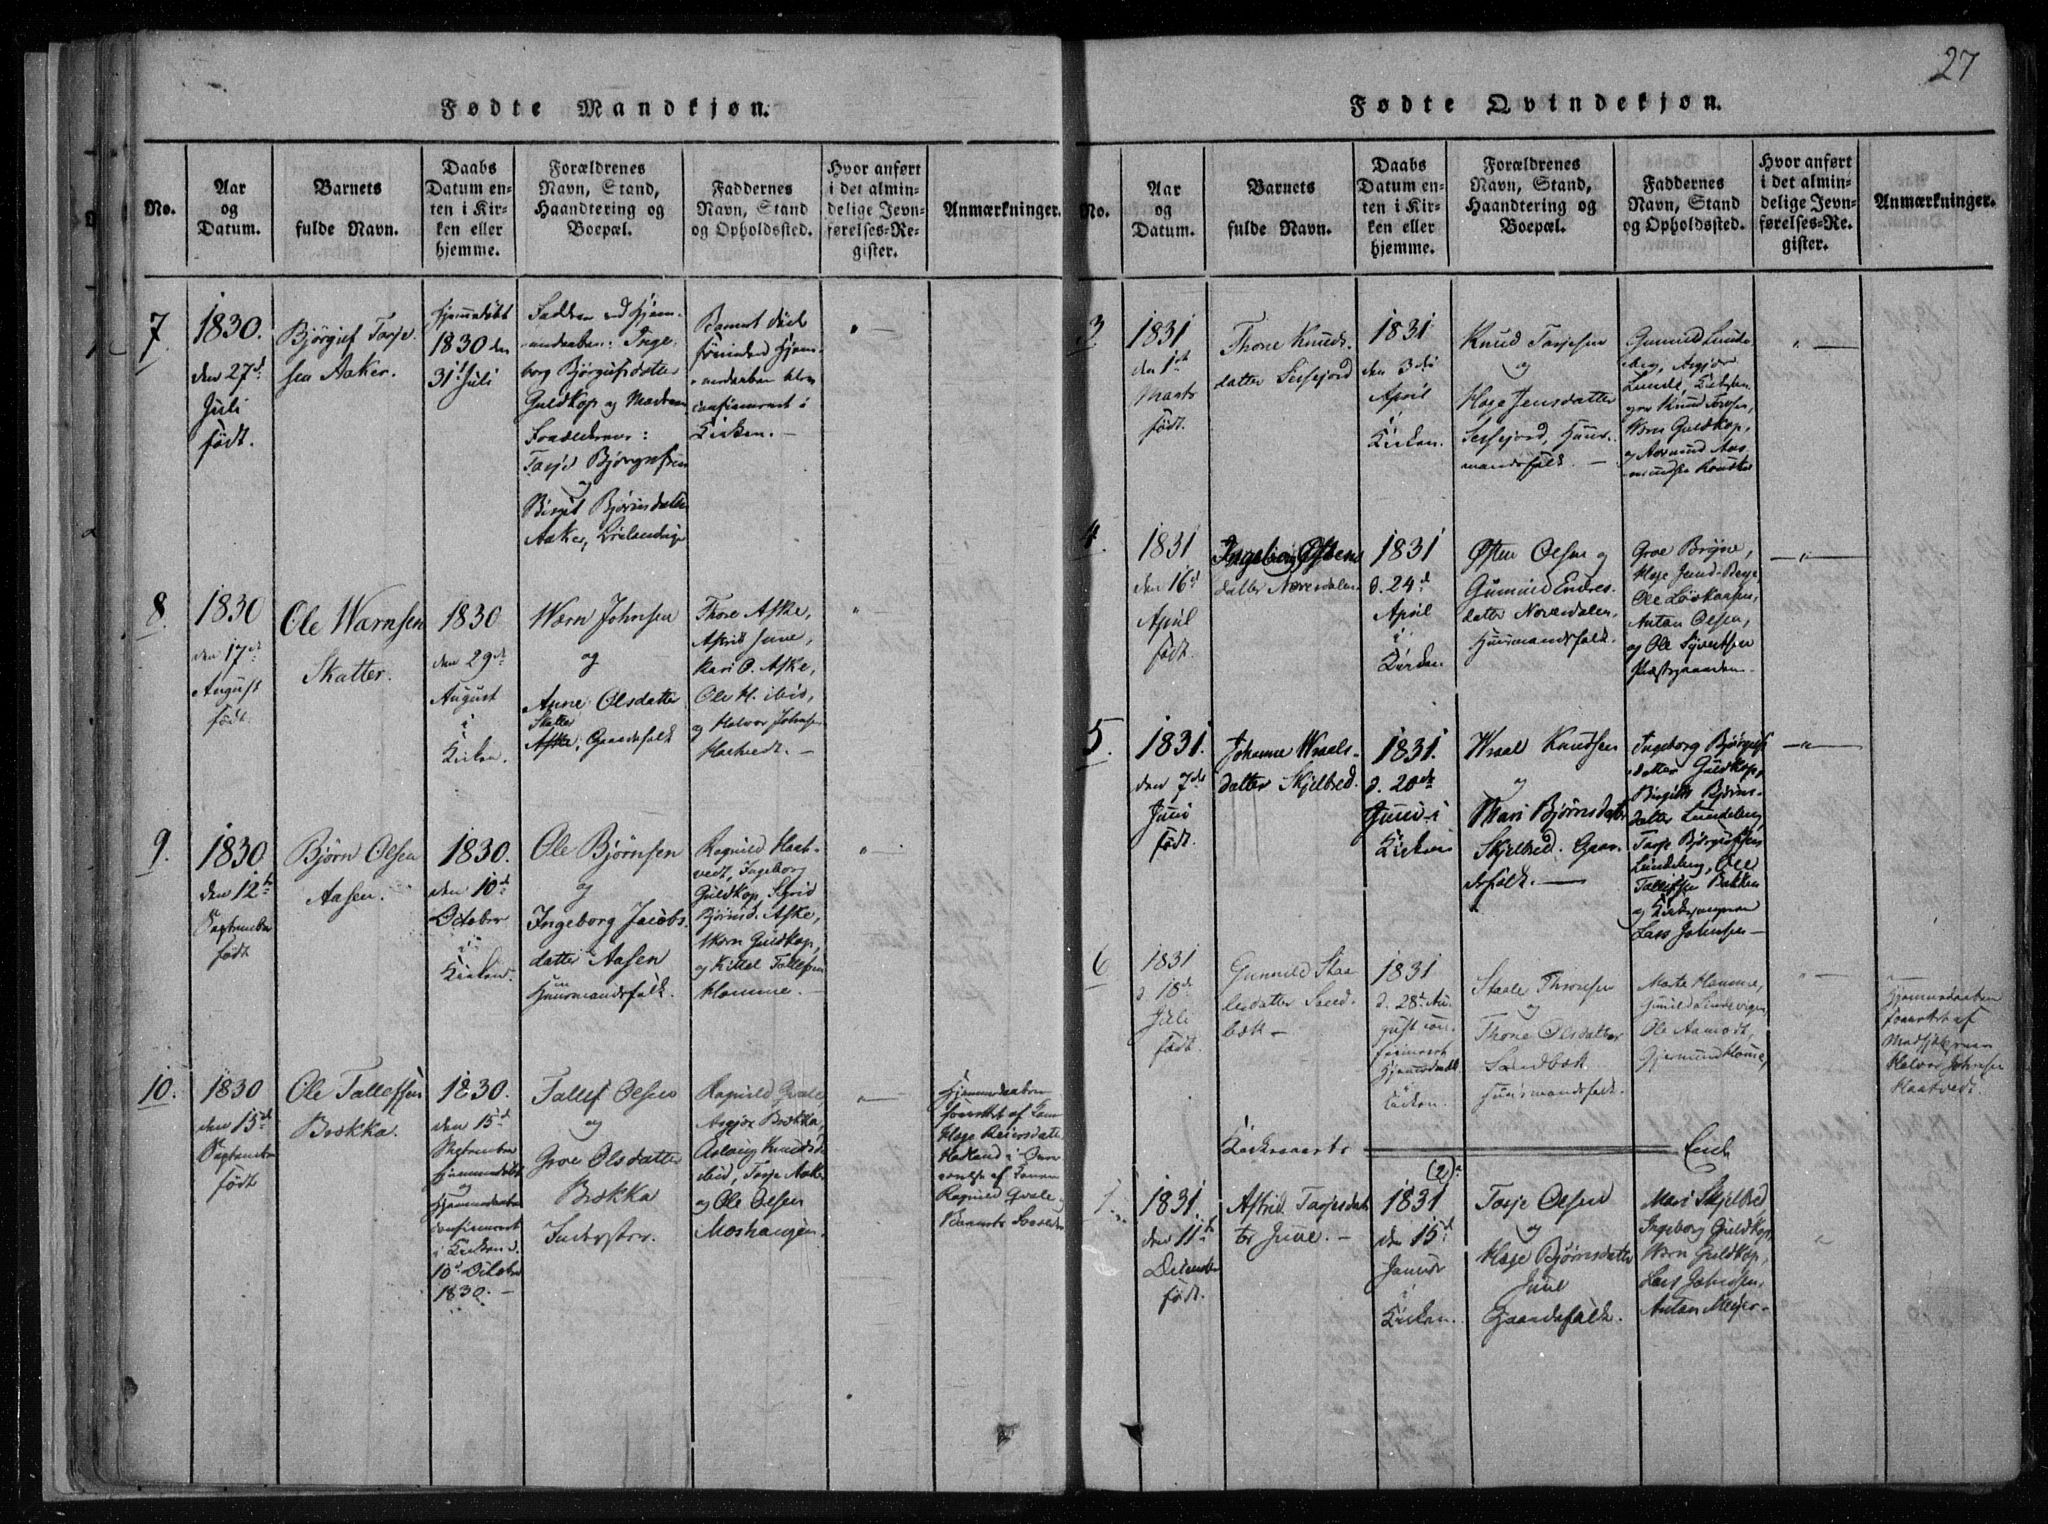 27
Fødte Mandkjøn.
No.
Aar
og
Datum.
Barnets
fulde Navn.
Daabs
Datum en-
ten i Kir-
ken eller
hjemme.
Forældrenes
Navn, Stand,
Haandtering og
Boepæl.
Faddernes
Navn, Stand
og Opholdssted.
Hvor anført
i det almin-
delige Jevn-
førelses-Re-
gister.
Anmærkninger.
7
1830.
den 27d
Juli
født.
Bjørguf Tarje
sen Aaker.
Hjemmedøbt
1830 den
31t Juli
Fadderne ved Hjem-
medaaben: Inge-
borg Bjørgufsdatter
Guldkop og
Forældrene:
Tarje Bjørgufsen
og
Birgit Bjørnsdatter
Aaker,
Barnet døde
førinden Hjem-
medaaben blev
confirmeret i
Kirken. —
8.
1830
den 17de
August
født.
Ole Wærnsen
Skatter.
1830
den 29de
August
i
Kirken.
Wærn Johnsen
og
Anne Olsdatter
Skatter
Aske, Gaardefolk
Thore Aske,
Astrid Juve,
Kari O. Aske,
Ole H. ibid,
og Halvor Johnsen
Hartvedt. —
9.
1830
den 12te
September
født
Bjørn Olsen
Aasen.
1830.
den 10d
October
i
Kirken.
Ole Bjørnsen
og
Ingeborg Jacobs
datter Aasen
Huusmandsfolk.
Ragnild Hart-
vedt, Ingeborg
Guldkop, Sigrid
Bjørnsd. Aske,
Wærn Guldkop,
og Kittel Tallefsen
Homme. —
10.
1830
den 15d
September
født
Ole Tallefsen
Brokka.
1830.
den 15d
September
hjemmedøbt
og
Hjemmedaaben
confirmeret
i Kirken d.
10d October
1830. —
Tallef Olsen
og
Groe Olsdatter
Brokka
Inderster.
Ragnild Qvale
Asgjør Brokka,
Aslaug Knudsd.
ibid, Tarje Aaker
og Ole Olsen
Moshaugen.
Hjemmedaaben
forrettet af
Hage Reiersdatter
Hadland i Over
værelse af
Ragnild Qvale og
Barnets Forældre
Fødte Qvindekjøn.
No.
Aar
og
Datum.
Barnets
fulde Navn.
Daabs
Datum en-
ten i Kir-
ken eller
hjemme.
Forældrenes
Navn, Stand,
Haandtering og
Boepæl.
Faddernes
Navn, Stand
og Opholdssted.
Hvor anført
i det almin-
delige Jevn-
førelses-Re-
gister.
Anmærkninger.
3
1831
den 1ste
Marts
født.
Thone Knuds-
datter Sessejord
1831
den 3die
April
i
Kirken.
Knud Tarjesen
og
Hage Jensdatter
Sessejord, Huus-
mandsfolk. —
Gunnild Lunde-
berg, Asgjør
Lunde,
Knud Tarjesen,
Wærn Guldkop,
og Aasmund Aas-
mundsen
4
1831
den 16d
April
født.
Ingeborg Østens
datter Noresdalen
1831
d. 24d
April
i
Kirken
Østen Olsen og
Gunnild Endres-
datter Noresdalen,
Huusmandsfolk.
Groe Bryne,
Hage
Ole
Antan Olsen,
og Ole Syvertsen
Præstegaarden —
5.
1831.
den 7de
Juni
født.
Johanne Wraals-
datter Skjelbred.
1831.
d. 20de
Juni i
Kirken
Wraal Knudsen
og
Mari Bjørnsdatter
Skjelbred. Gaar-
defolk. —
Ingeborg Bjørgufs-
datter Guldkop,
Birgitte Bjørns-
datter Lundeberg,
Tarje Bjørgufsen
Lundeberg, Ole
Tallefsen Bakken
og Kirkesangeren
Lars Johnsen —
6
1831
d. 18d
Juli
født.
Gunnild Staa
lesdatter Sand-
bæk —
1831
d. 28de Au-
gust con-
firmeret
Hjemmedaab
i Kirken.
Staale Thronsen
og
Thone Olsdatter
Sandbæk
Huusmandsfolk.
Marte Homme,
Gunild Lindevigen
Ole Aamodt,
Gjermund Homme,
Hjemmedaaben
forrettet af
Medhjelperen
Halvor Johnsen
Hartvedt.
Kirkeaarets
Ende
7.
1831.
den 11te
December
født.
Astrid Tarjesdat
ter Juve. —
(2)
1831
den 15d
Januar
i
Kirken.
Tarje Olsen
og
Hage Bjørnsdatter
Juve
Gaardefolk.
Mari Skjelbred
Ingeborg Guldkop,
Wærn Guldkop,
Lars Johnsen,
Antan Meyer —